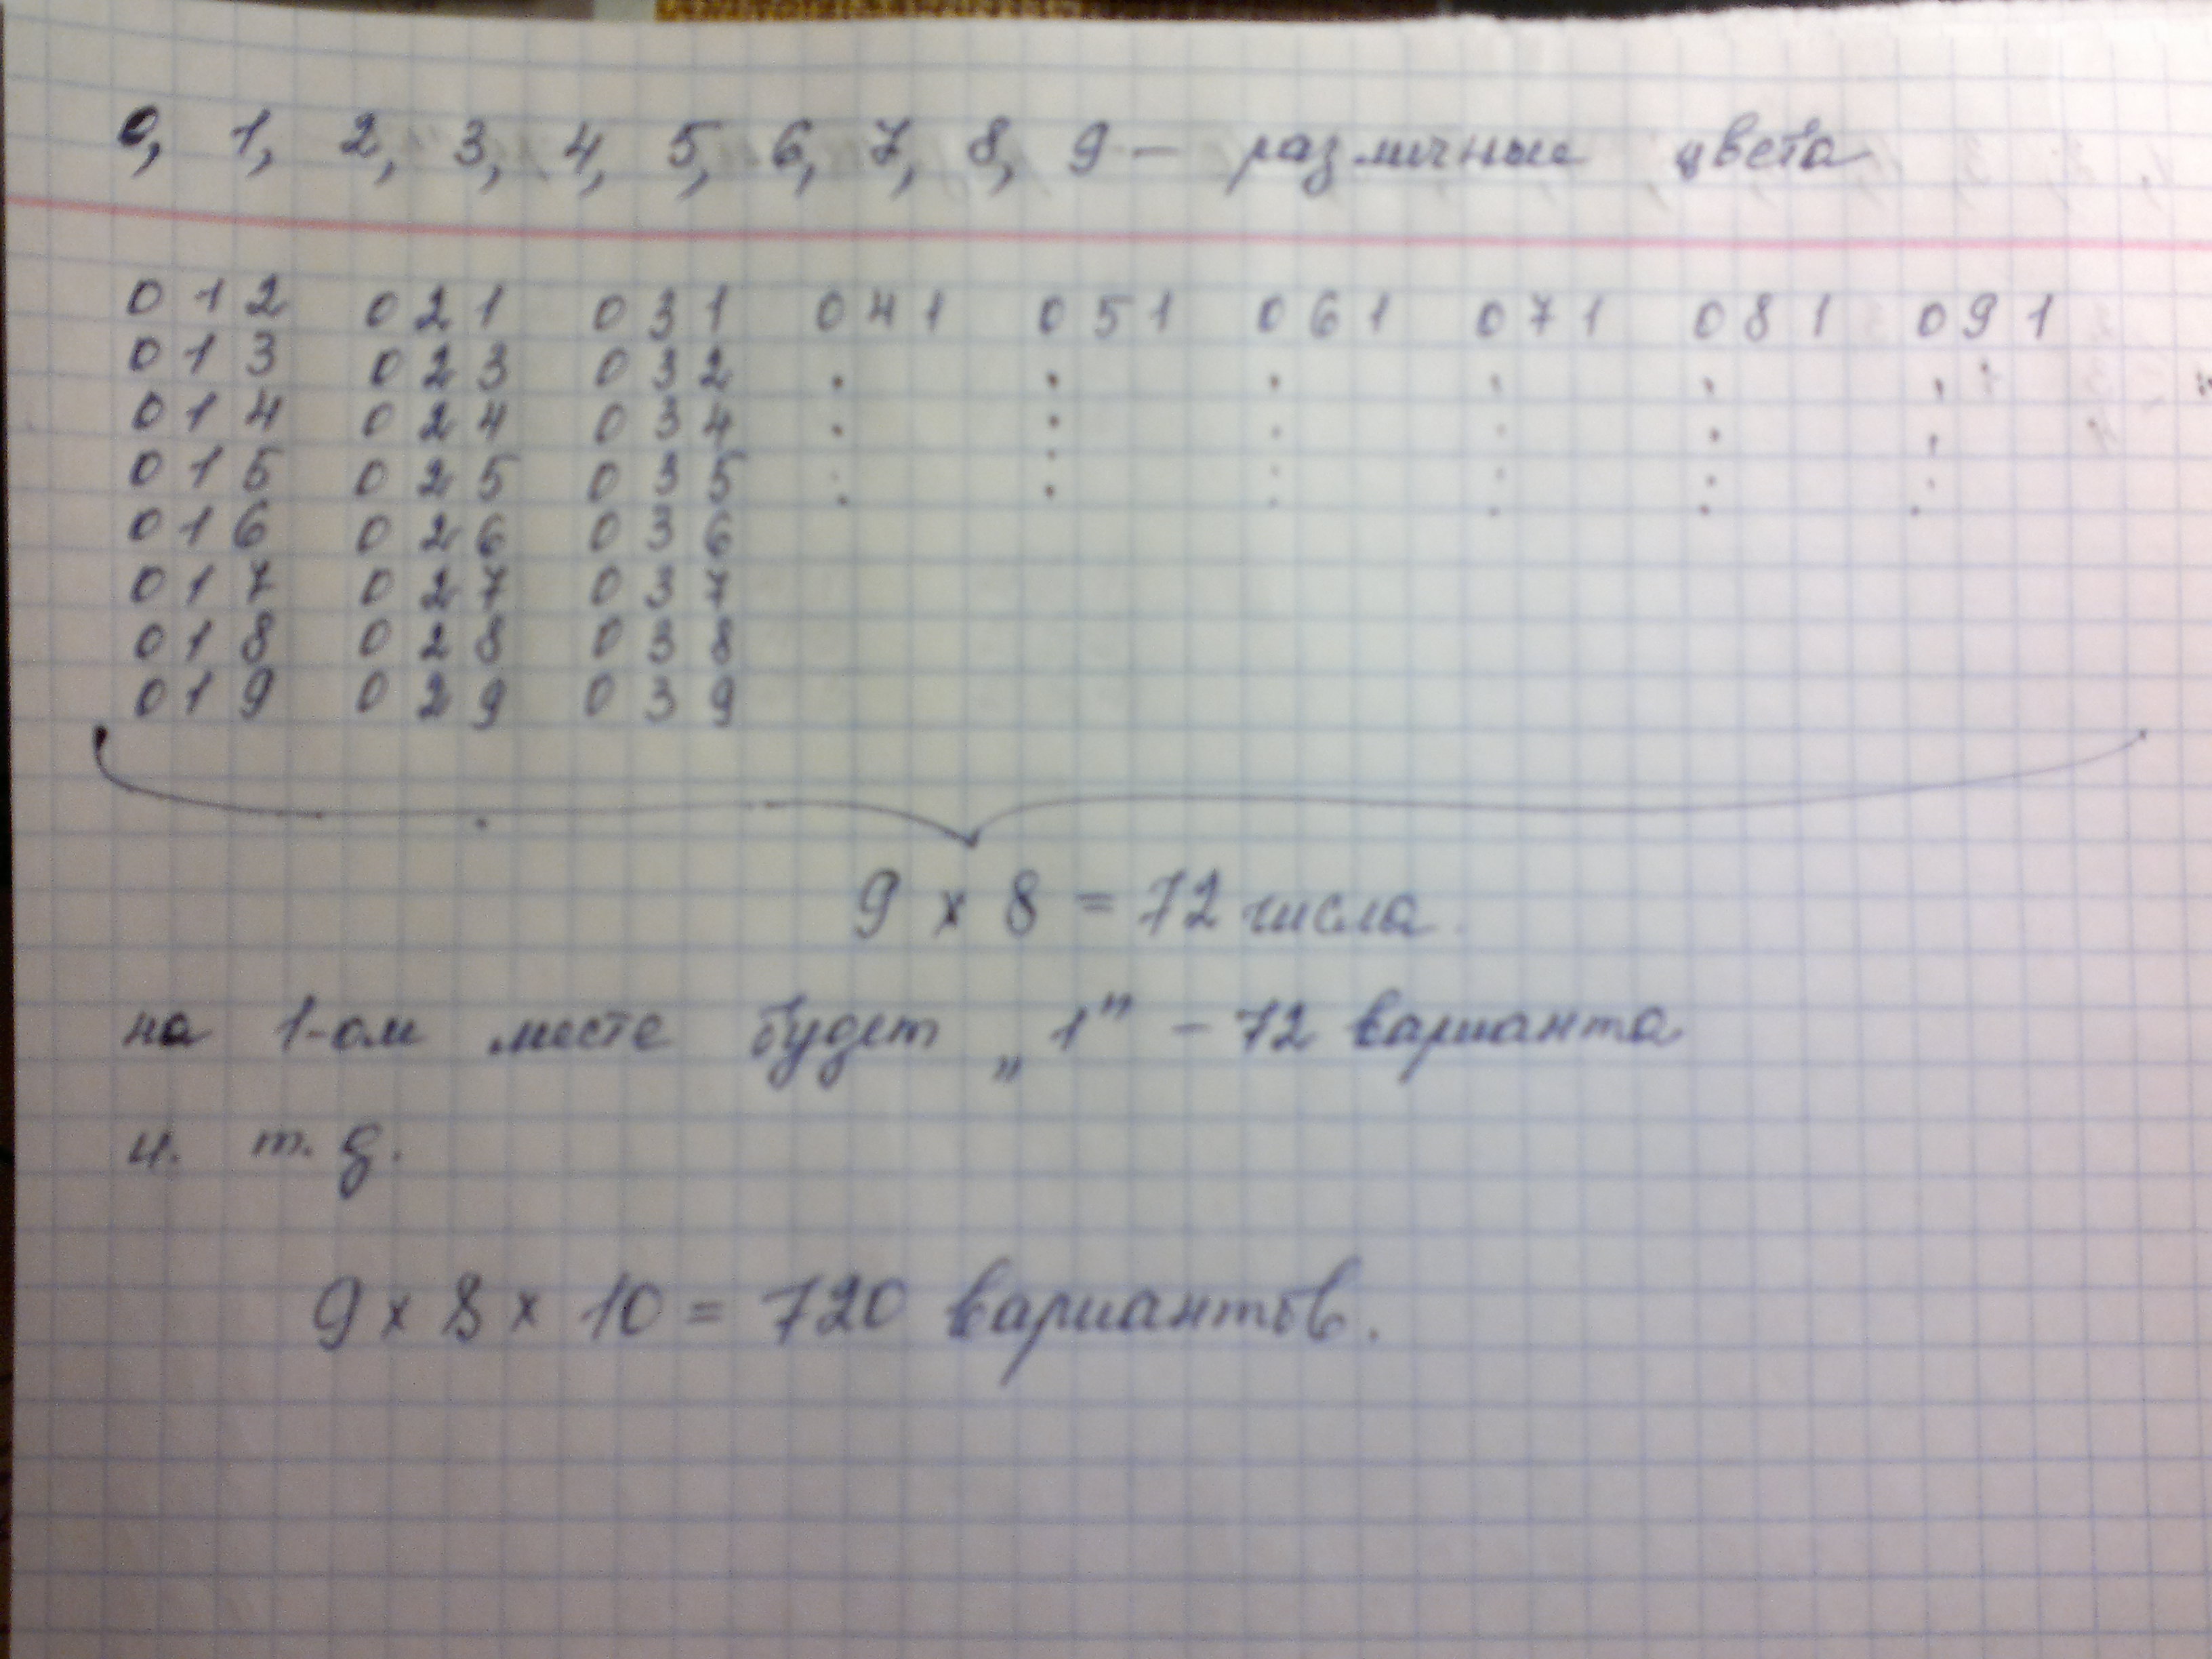 0, 1, 2, 3, 4, 5, 6, 7, 8, 9 — различные цвета
0 1 2 0 2 1 0 3 1 0 4 1 0 5 1 0 6 1 0 7 1 0 8 1 0 9 1
0 1 3 0 2 3 0 3 2
0 1 4 0 2 4 0 3 4
0 1 5 0 2 5 0 3 5
0 1 6 0 2 6 0 3 6
0 1 7 0 2 7 0 3 7
0 1 8 0 2 8 0 3 8
0 1 9 0 2 9 0 3 9
9 x 8 = 72 числа.
на 1-ом месте будет „1" – 72 варианта
и. т. д.
9 x 8 x 10 = 720 вариантов.